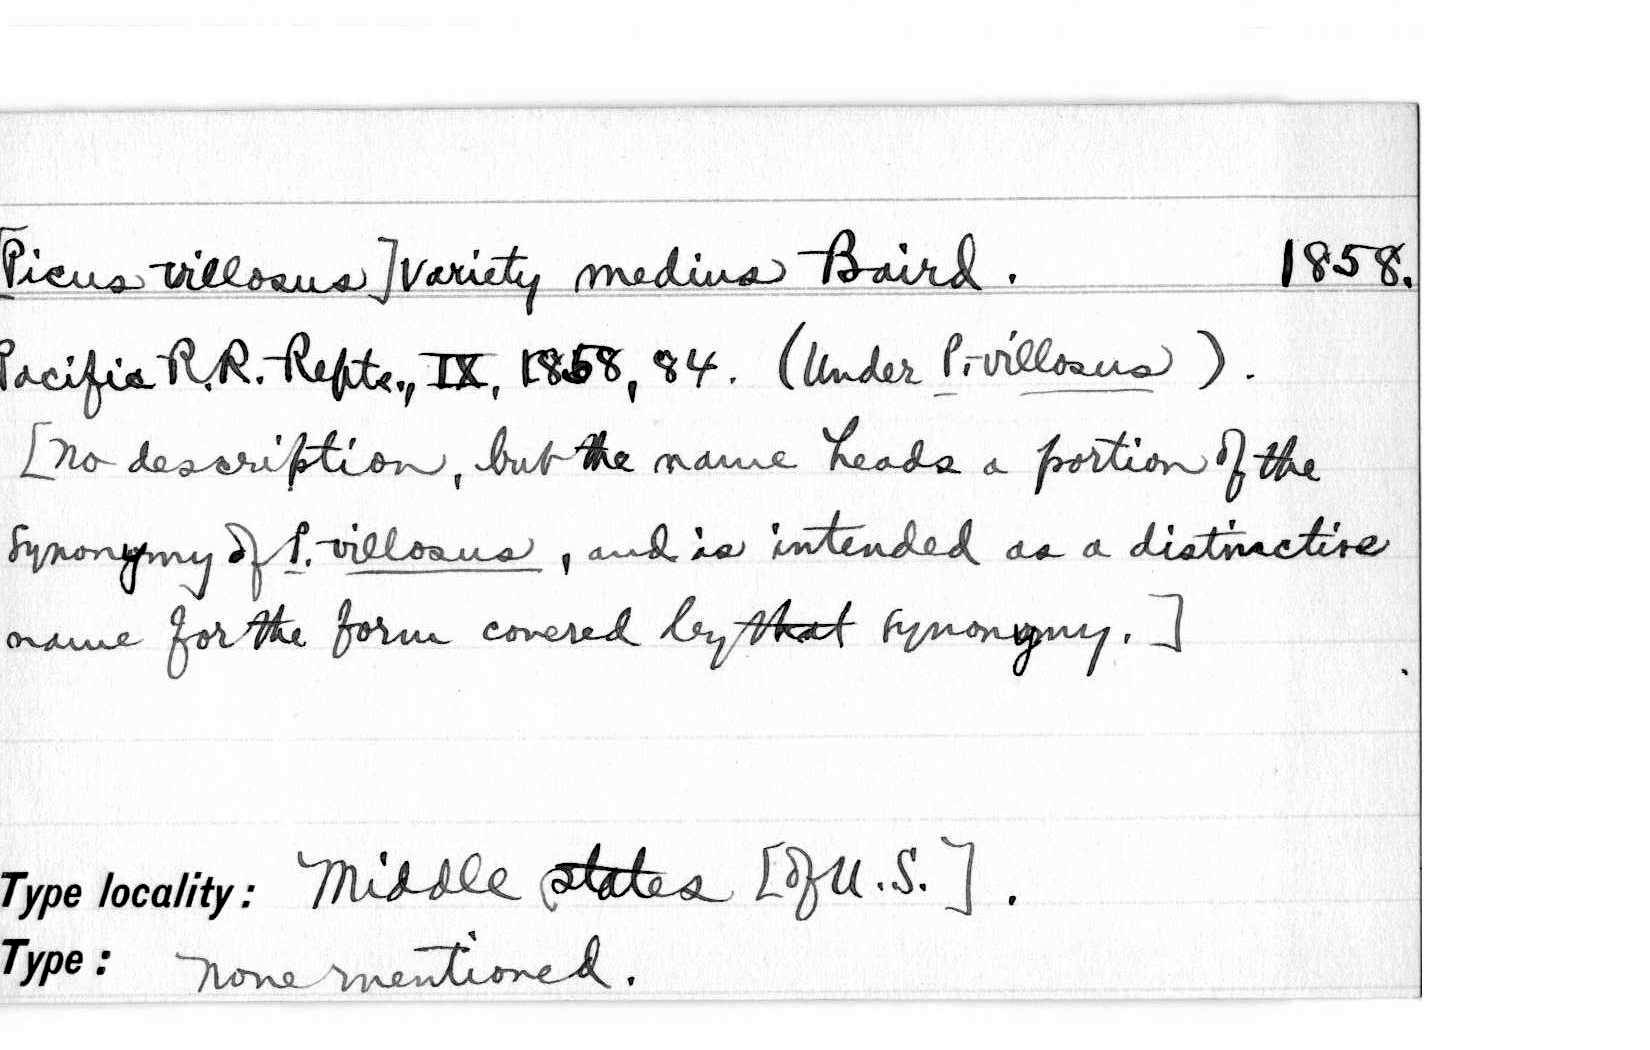 [Picus villosus] Variety medius Baird. 1858.
Pacific R.R. Repts., IX, 1858, 84. (Under P. villosus).
[No description, but the name heads a portion of the
synonymy of P. villosus, and is intended as a distinctive
name for the form covered by that synonymy.]
Type locality: Middle states [of U.S.].
Type: None mentioned.